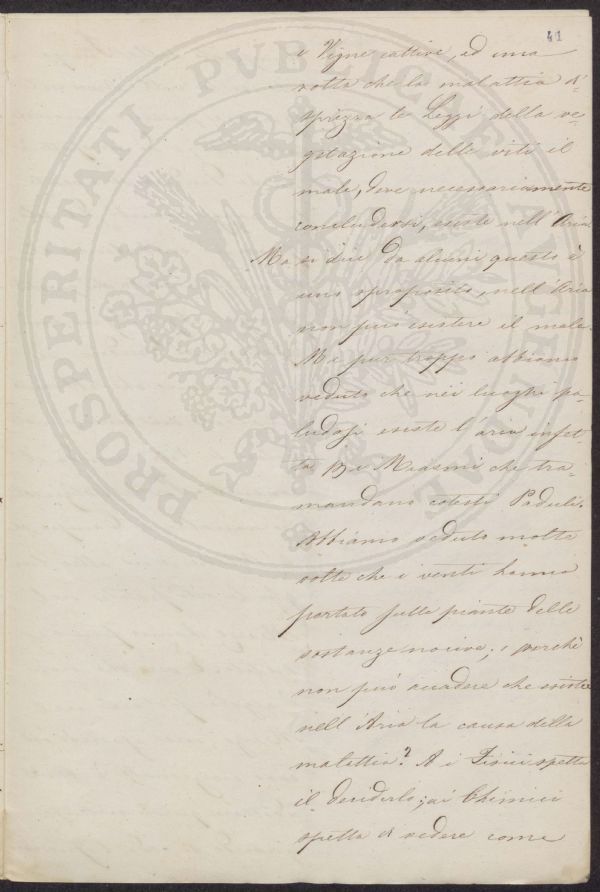 41
e Vigne cattive, ed una
volta che la malattia di-
sprezza le Leggi della ve-
getazione delle viti il
male, deve necessariamente
concludersi, esiste nell'Aria.
Ma si dice da alcuni questo è
uno sproposito, nell'Aria
non può esistere il male.
Ma pur troppo abbiamo
veduto che nei luoghi pa-
ludosi esiste l'aria infet-
ta Miasmi che tra-
mandano cotesti Paduli.
Abbiamo veduto molte
volte che i venti hanno
portato sulle piante delle
sostanze nocive; e perché
non può accadere che esista
nell'Aria la causa della
malattia? A i Fisici spetta
il deciderlo; ai Chimici
spetta a vedere come
PROSPERITATI PUBLICAE AUGENDAE